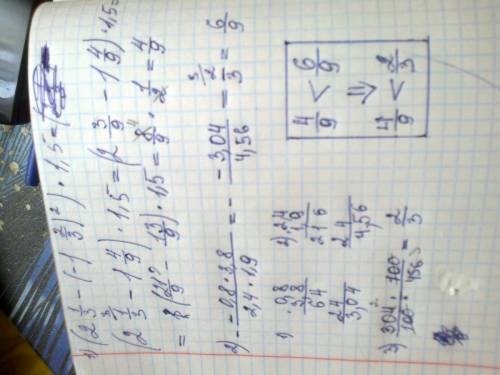 1) (2 1/3 - (-1 2/3)²) · 1,5 = (
(2 1/3 - 1 4/9) · 1,5 = (2 3/9 - 1 4/9) · 1,5 =
= (21/9 - 13/9) · 1,5 = 8/9 · 1/2 = 4/9
2) - -0,8 · 3,8 / 2,4 · 1,9 = - - 3,04 / 4,56 = 2/3 = 6/9
1) 0,8
3 8
6 4
2 4
3,04
2) 2 4
1 9
2 1 6
2 4
4,56
3) 304/100 · 100/456 = 2/3
4/9 < 6/9
⇓
4/9 < 2/3